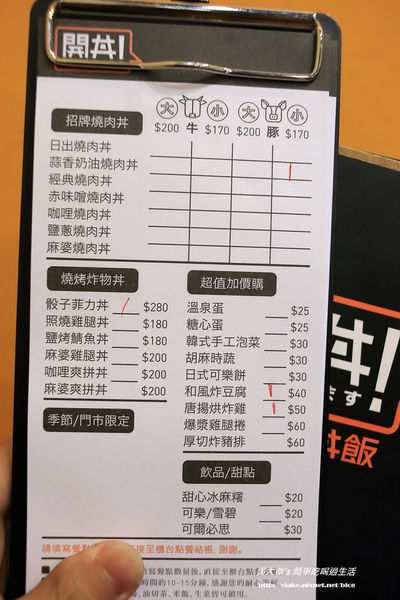 開丼!
招牌燒肉丼
大 小 大 小
$200 牛 $170 $200 豚 $170
日出燒肉丼
蒜香奶油燒肉丼
經典燒肉丼
赤味噌燒肉丼
咖哩燒肉丼
鹽蔥燒肉丼
麻婆燒肉丼
燒烤炸物丼
骰子菲力丼 $280
照燒雞腿丼 $180
鹽烤鯖魚丼 $180
麻婆雞腿丼 $200
咖哩爽拼丼 $200
麻婆爽拼丼 $200
季節/門市限定
超值加價購
溫泉蛋 $25
糖心蛋 $25
韓式手工泡菜 $30
胡麻時蔬 $30
日式可樂餅 $30
和風炸豆腐 $40
唐揚烘炸雞 $50
爆漿雞腿捲 $60
厚切炸豬排 $60
飲品/甜點
甜心冰麻糬 $20
可樂/雪碧 $20
可爾必思 $30
請填寫餐點 接至櫃台點餐結帳, 謝謝。
填寫餐點數量後, 直接至櫃台點
時間約10-15分鐘, 感謝您的耐心
、油切茶、米飯、生菜皆可續用。
丼!
ます
丼飯
's 簡單吃喝過生活